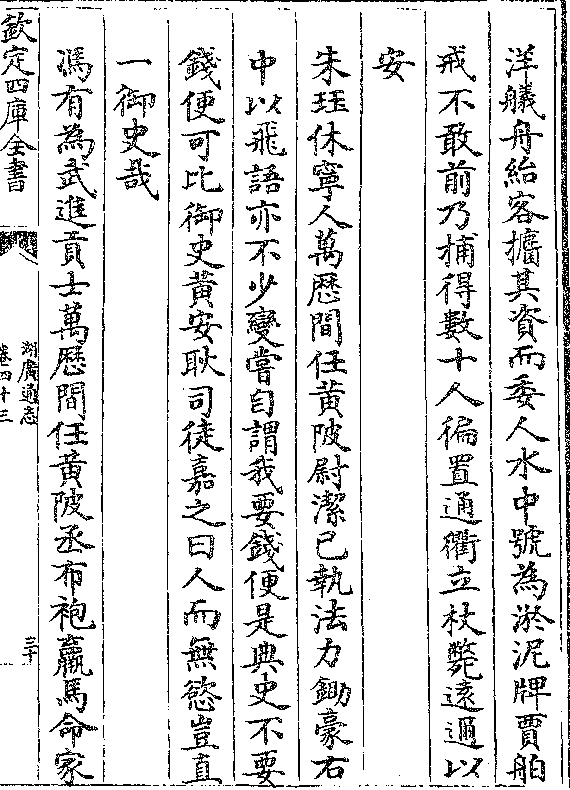 洋艤舟紿客攟其資而委人水中號為淤泥牌賈舶
戒不敢前乃捕得數十人徧置通衢立杖斃遠邇以
安
朱珏休寧人萬歴間任黃陂尉潔己執法力鋤豪右
中以飛語亦不少變嘗自謂我要錢便是典史不要
錢便可比御史黃安耿司徒嘉之曰人而無慾豈直
一御史哉
馮有為武進貢士萬歴間任黃陂丞布袍羸馬命家
欽定四庫全書
湖廣通志
卷四十三
三十